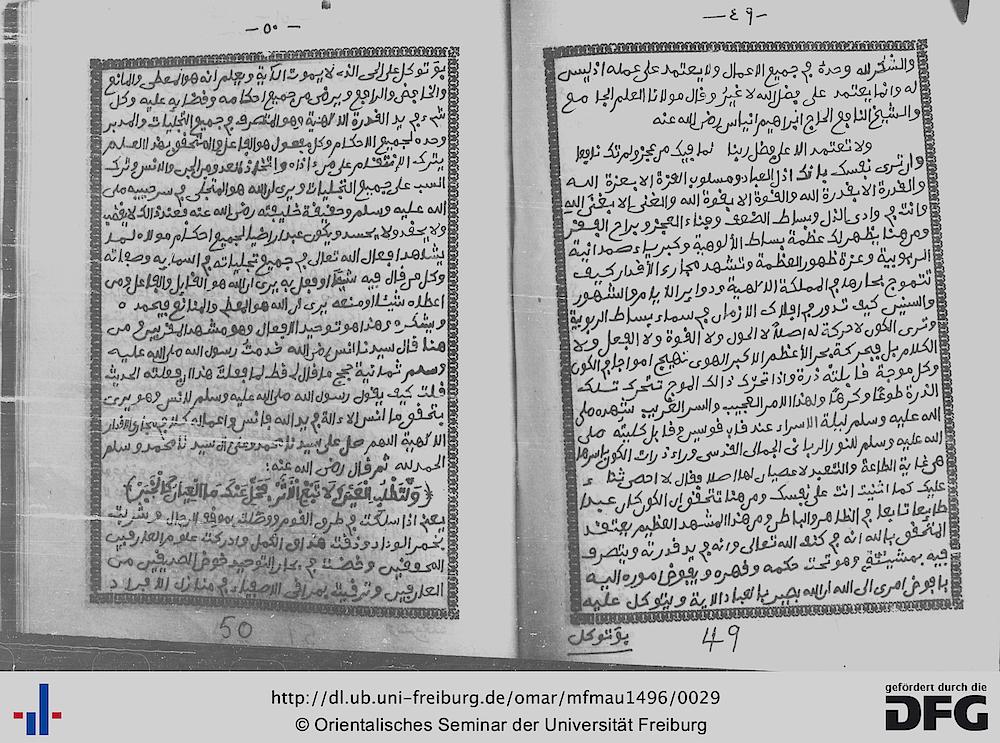 -٤٩-
والشكر لله وحده في جميع الاعمال ولا يعتمد على عمله اذ ليس
له وانما يعتمد على فضل الله لا غير وقال مولانا العلم الجامع
والشيخ النافع الحاج ابراهيم انياس رضي الله عنه
ولا تعتمد الا على فضل ربنا فما فيك من عجز ولم تك نافعا
وان ترى نفسك اذل العباد ومسلوب العزة الا بعزة الله
والقدرة الا بقدرة الله والقوة الا بقوة الله والغنى الا بغنى الله
وانت في وادي الذل وبساط الضعف وفناء العجز وبراح الفقر
ومن هنا يظهر لك عظمة بساط الألوهية وكبرياء صمدانية
الربوبية وعزة ظهور العظمة وتشهد مجاري الأقدار كيف
تتموج بحارها في المملكة الالهية ودوائر الايام والشهور
والسنين كيف تدور في افلاك الازمان في سماء بساط الربوبية
وترى الكون لا حركة له اصلا لا الحول ولا القوة ولا الفعل ولا
الكلام بل بحركة بحر الأعظم الاكبر الهوى تهيج امواجا في الكون
وكل موجة قابلته ذرة واذا تحرك ذالك الموج تتحرك تلك
الذرة طوعا وكرها ولهذا الامر العجيب والسر الغريب شهده صلى
الله عليه وسلم ليلة الاسراء عند قاب قوسين وقابل كليته صلى
الله عليه وسلم النور الرباني الجمالي القدسي وراء ذرات الكون باسرها
هي غاية الطاعة والتعبد لا عصيان لها اصلا فقال لا احصي ثناء
عليك كما اثنيت انت على نفسك ومن هنا تتحقق ان الكون كان عبدا
طائعا تابعا في الظاهر والباطن ومن هذا المشهد العظيم يعتقد
المتحقق بالله انه في كنف الله تعالى وانه في يد قدرته ويتصرف
فيه بمشيئته وهو تحت حكمه وقهره ويفوض اموره اليه
بافوض امري الى الله ان الله بصير بالعباد الاية ويتوكل عليه
بوتوكل
49
-٥٠-
بوتوكل على الحي الذي لا يموت الآية ويعلم انه هو المعطي والمانع
والخافض والرافع ويرضى من جميع احكامه وقضايه عليه وكل
شيء في يد القدرة الالهية وهو المتصرف في جميع التجليات والمدبر
وحده لجميع الاحكام وكل مفعول هو الفاعل والمتحقق بهذا العلم
يترك الانتقام على من اذاه واتخاذ العدو من الجن والانس وترك
السب على جميع التجليات ويرى ان الله هو المتجلي في حبيبه صلى
الله عليه وسلم وحقيقة خليفته رضي الله عنه فعند ذالك لا يغضب
ولا يحقد ولا يحسد ويكون عبدا راضيا لجميع احكام مولاه لما
يشاهد افعال الله تعالى في جميع تجلياته في اسمايه وصفاته
وكل من قال فيه شيئا او فعل به يرى ان الله هو القايل والفاعل ومن
اعطاه شيئا او منعه يرى ان الله هو المعطي والمانع فيحمده
ويشكره وهذا هو توحيد الافعال وهو مشهد المقربين ومن
هنا قال سيدنا انس رضي الله خدمت رسول الله صلى الله عليه
وسلم ثمانية حجج ما قال لي قط لما فعلت هذا ان فعلته الحديث
قلت كيف يقول رسول الله صلى الله عليه وسلم لانس وهو يرى
بتحقق ما انس الا ءالة في يد الله فانس واعماله كتبة في مجاري الاقدار
الالهية اللهم صل على سيدنا محمد وعلى آل سيدنا محمد وسلم
الحمد لله ثم قال رضي الله عنه:
﴿ولتطلب العين ولا تتبع الأثر﴾
يعني اذا سلكت في طرق القوم ووصلت بموقف الرجال وشربت
بخمر الوداد وذقت مذاق الكمل وادركت علوم العارفين
المحققين وخضت في بحار التوحيد خوض الصديقين من
العارفين وترقيت بمراقي الاصفياء في منازل الافراد
50
http://dl.ub.uni-freiburg.de/omar/mfmau1496/0029
© Orientalisches Seminar der Universität Freiburg
gefördert durch die
DFG